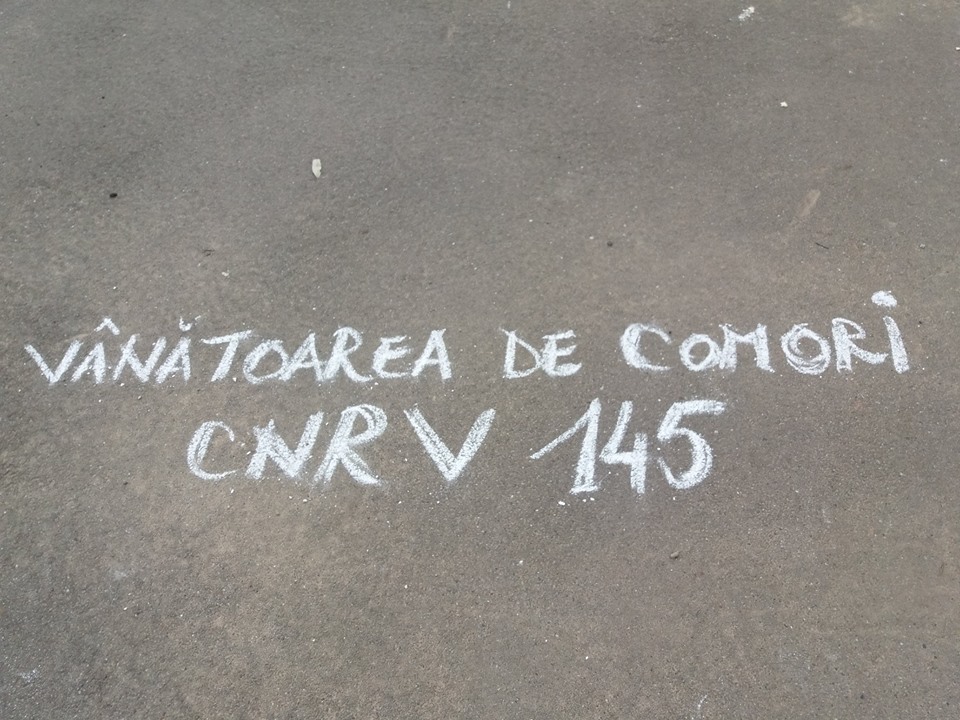 VÂNĂTOAREA DE COMORi
CNRV 145